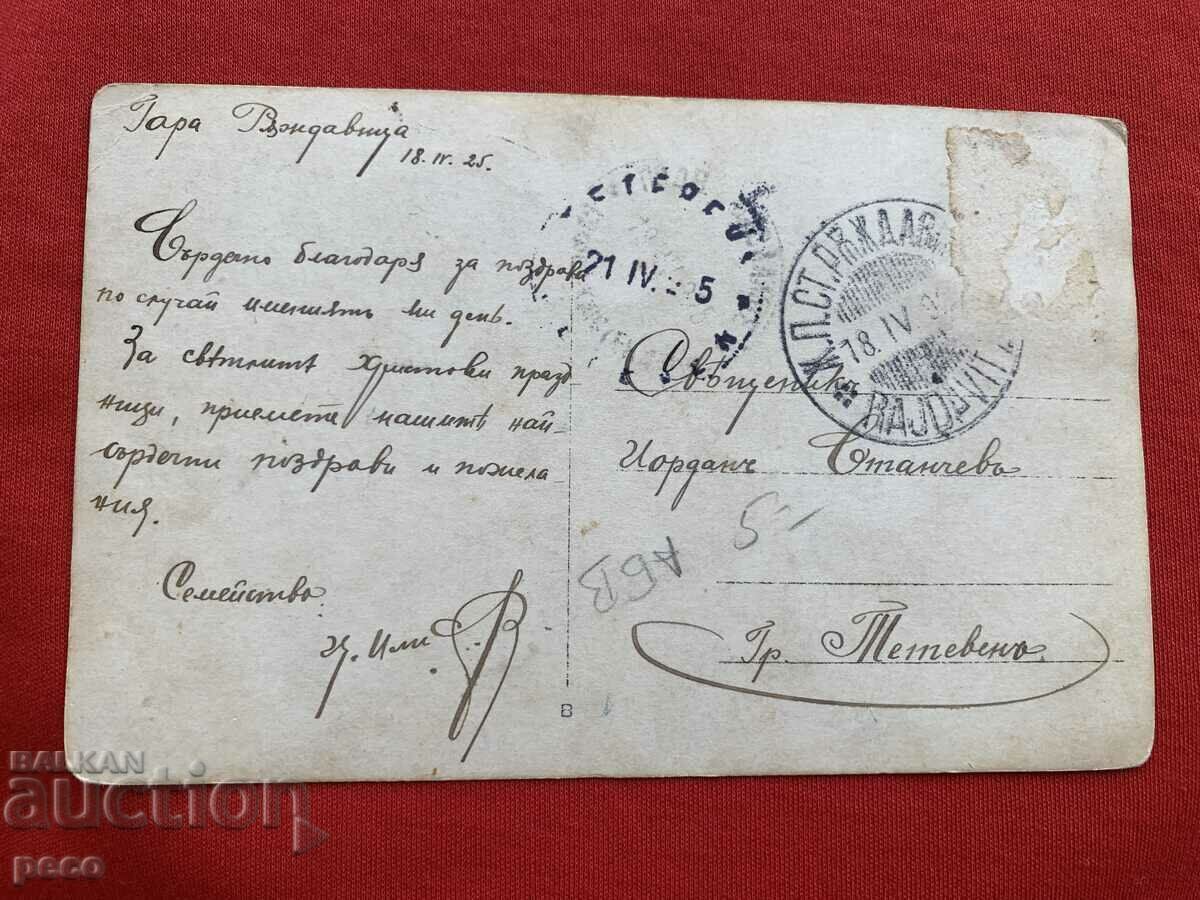 Гара Рѫждавица
18.IV.25.
Сърдечно благодаря за поздрава
по случай имениятъ ми день.
За свѣтлитѣ Христови праз-
ници, приемете нашитѣ най-
сърдечни поздрави и пожела
ния.
Семейство
21 IV. 5
Ж.П.СТ.РѪЖДАВ
18 IV
RAJDAVIT
Свѣщеникъ
Йорданъ Станчевъ
5
АБВ
Гр. Тетевенъ
8
BALKAN
auction
peco